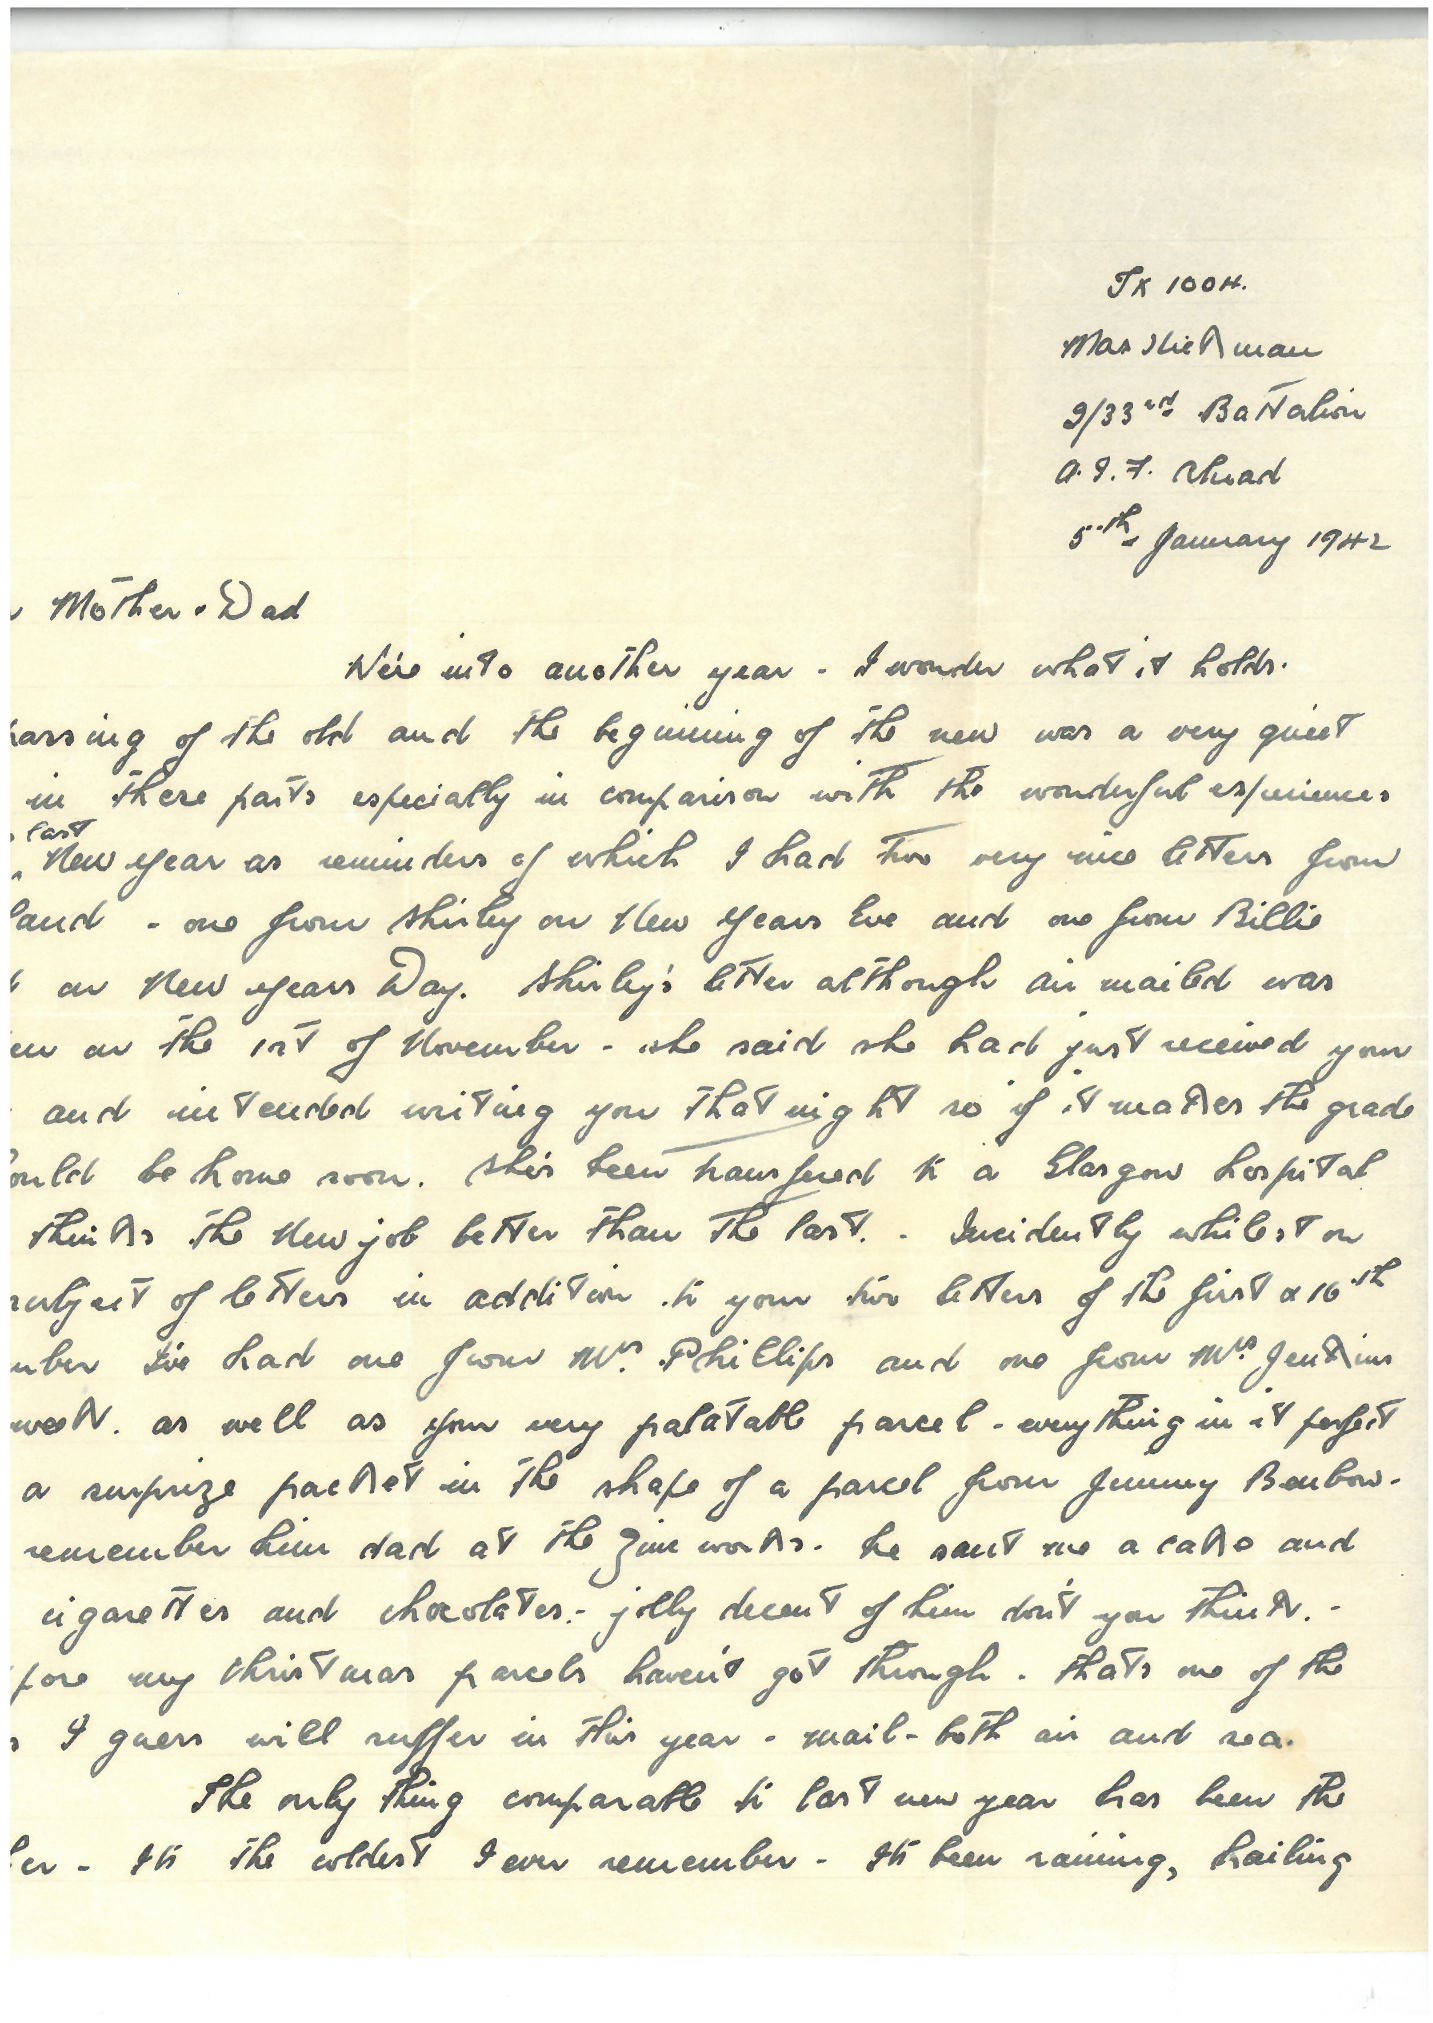 TX 1004.
Max Hickman
2/33rd Battalion
A.I.F. Abroad
5th January 1942
Mother & Dad
We're into another year - I wonder what it holds.
passing of the old and the beginning of the new was a very quiet
in these parts especially in comparison with the wonderful experiences
last
New Year as reminders of which I had two very nice letters from
land - one from Shirley on New Years Eve and one from Billie
on New Years Day. Shirley's letter although air mailed was
en on the 1st of November - she said she had just received your
and intended writing you that night so if it makes the grade
ould be home soon. She's been transfered to a Glasgow hospital
thinks the New job better than the last. - Incidently whilst on
subject of letters in addition to your two letters of the first & 16th
mber I've had one from Mrs. Phillips and one from Mrs. Jenkins
week. as well as your very palatable parcel - everything in it perfect
a surprize packet in the shape of a parcel from Jimmy Benbow.
remember him dad at the Zinc works. he sent me a cake and
cigarettes and chocolates. - jolly decent of him don't you think. -
fore my Christmas parcels haven't got through. thats one of the
s I guess will suffer in this year - mail - both air and sea.
The only thing comparable to last new year has been the
her - Its the coldest I ever remember - Its been raining, hailing